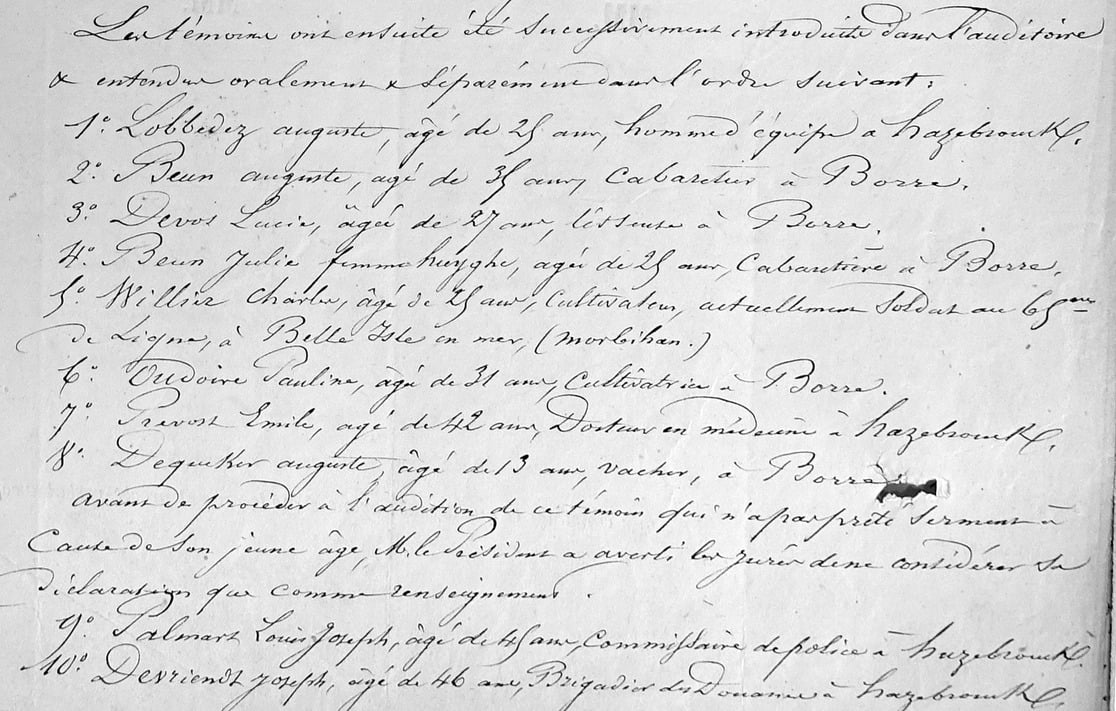 Les témoins ont ensuite été successivement introduits dans l'auditoire
& entendus oralement & séparément dans l'ordre suivant:
1º Lobbedez auguste, âgé de 25 ans, homme d'équipe à hazebrouck.
2º Beun auguste, âgé de 35 ans, Cabaretier à Borre.
3º Devos Lucie, âgée de 27 ans, à Borre.
4º Beun Julie femme huyghe, agée de 25 ans, Cabaretière à Borre.
5º Williez Charles, âgé de 25 ans, Cultivateur, actuellement Soldat au 65eme
de Ligne, à Belle Isle en mer, (morbihan.)
6º Oudoire Pauline, âgée de 31 ans, Cultivatrice à Borre.
7º Prevost Emile, agé de 42 ans, Docteur en médecine à hazebrouck.
8º Dequeker auguste, âgé de 13 ans, vacher, à Borre.
avant de procéder à l'audition de ce témoin qui n'a pas prêté Serment à
Cause de Son jeune âge, M. le Président a averti les jurés de ne considérer sa
déclaration que comme renseignement.
9º Palmart Louis Joseph, âgé de 45 ans, Commissaire de police à hazebrouck.
10º Devriendt Joseph, âgé de 46 ans, Brigadier des Douanes à hazebrouck.